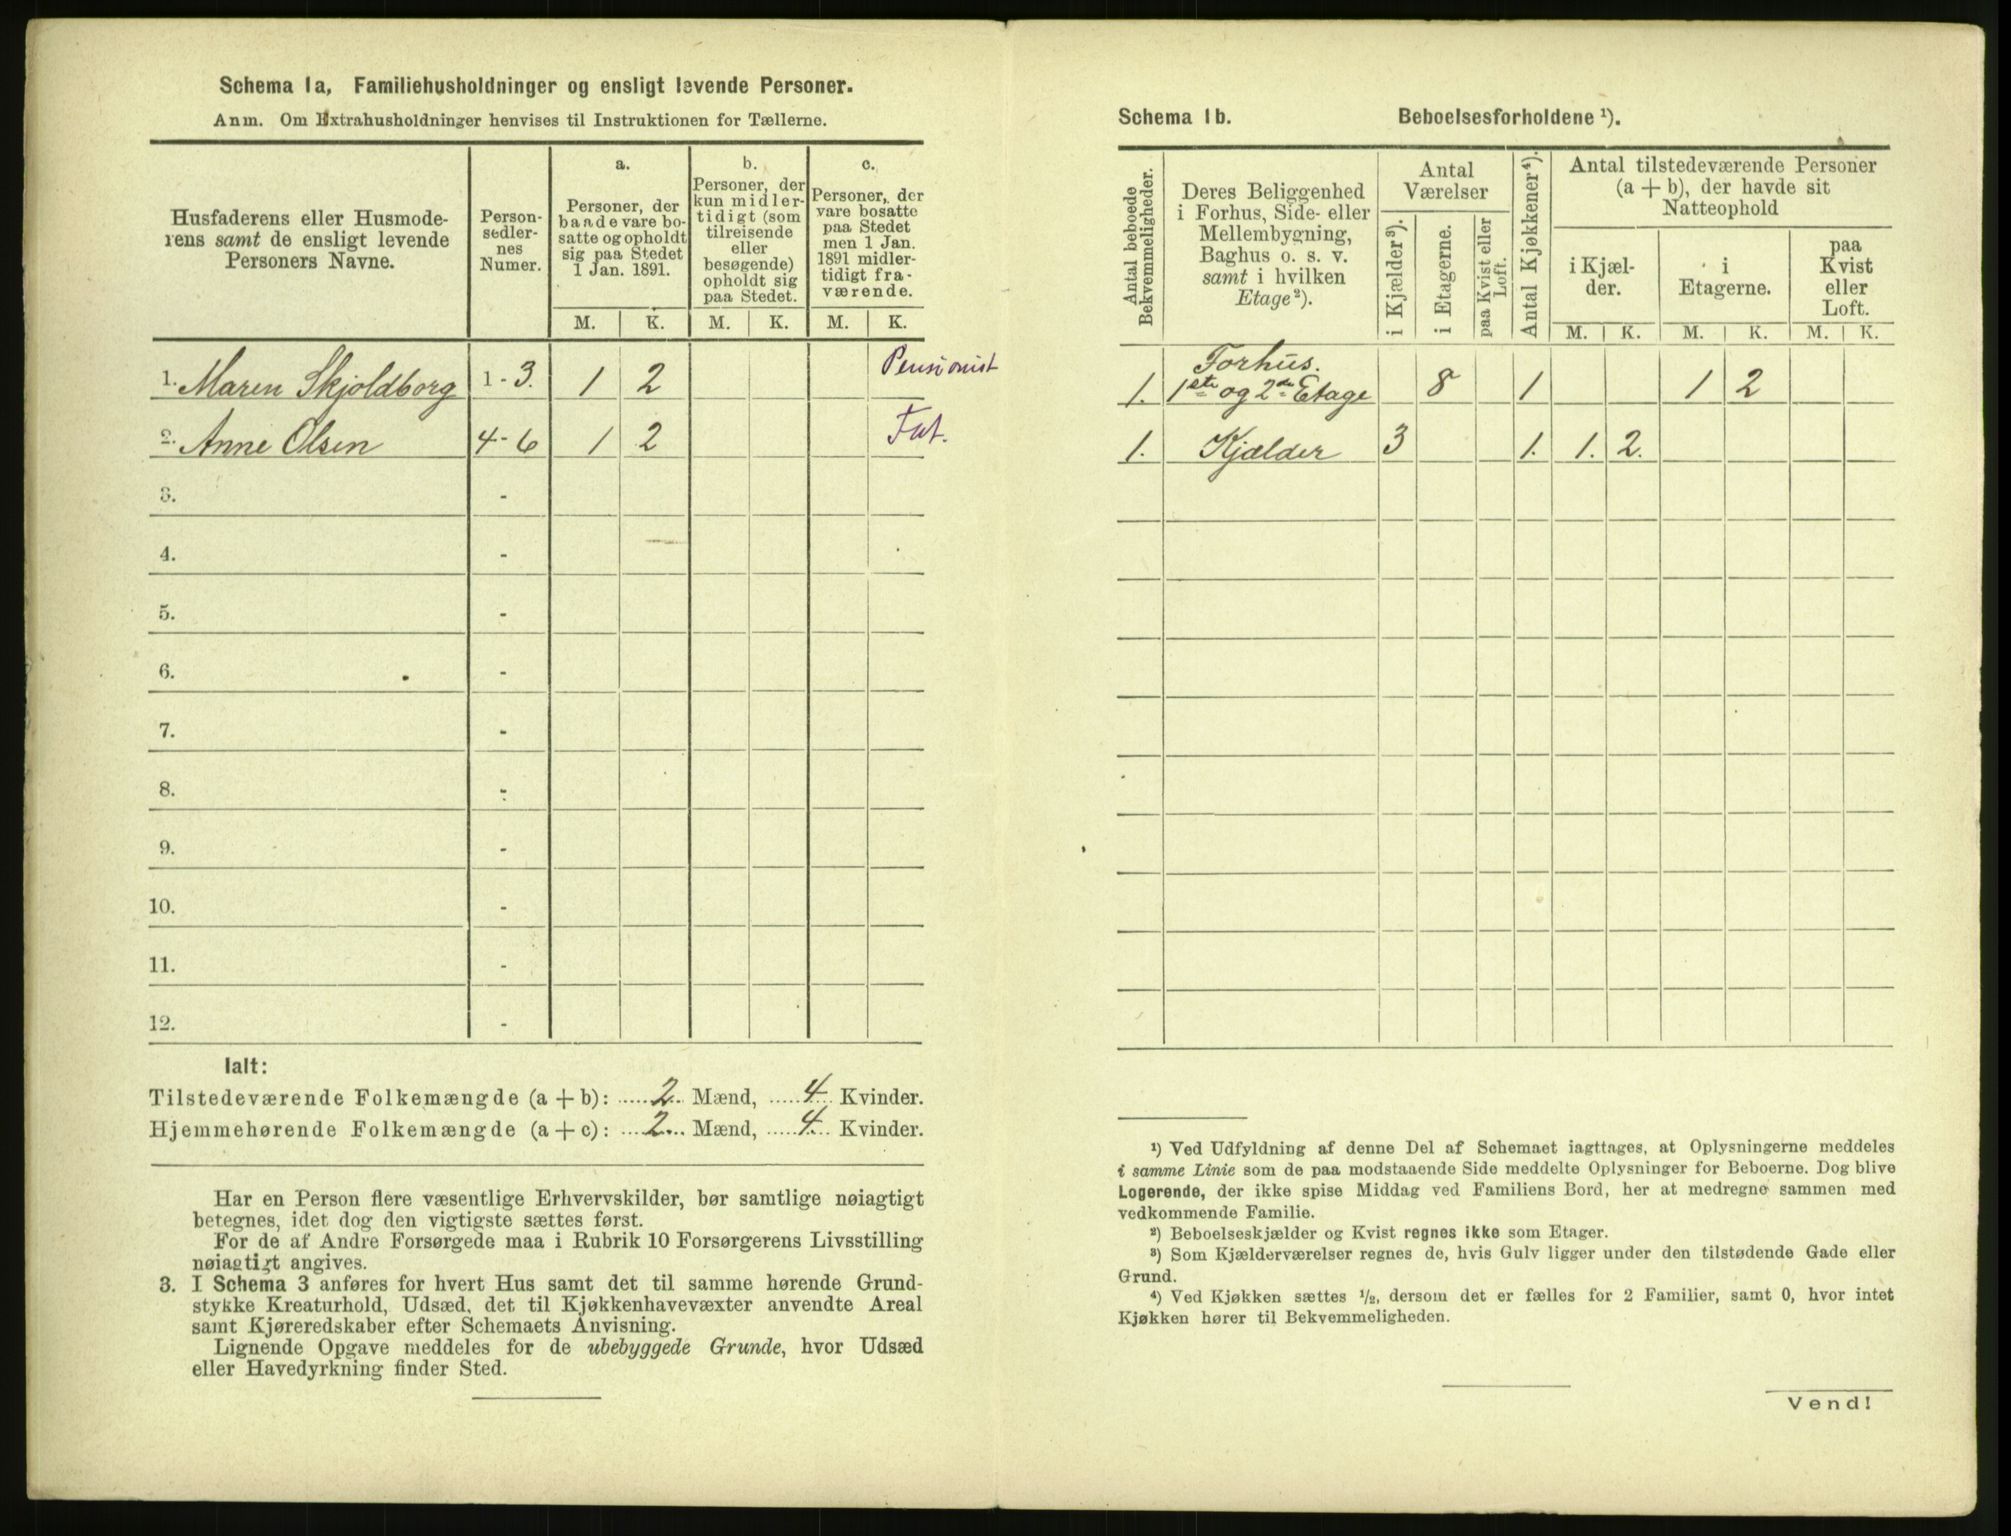 Schema 1a, Familiehusholdninger og ensligt levende Personer.
Anm. Om Extrahusholdninger henvises til Instruktionen for Tællerne.
Husfaderens eller Husmode-
rens samt de ensligt levende
Personers Navne.
Person-
sedler-
nes
Numer.
a.
Personer, der
baade vare bo-
satte og opholdt
sig paa Stedet
1 Jan. 1891.
b.
Personer, der
kun midler-
tidigt (som
tilreisende
eller
besøgende)
opholdt sig
paa Stedet.
c.
Personer, der
vare bosatte
paa Stedet
men 1 Jan.
1891 midler-
tidigt fra-
værende.
M. K. M. K. M. K.
1. Maren Skjoldborg 1-3. 1 2 Pensionist
2. Anne Olsen 4-6 1 2 Fat.
3. -
4. -
5. -
6. -
7. -
8. -
9. -
10. -
11. -
12. -
Ialt:
Tilstedeværende Folkemængde (a + b): 2 Mænd, 4 Kvinder.
Hjemmehørende Folkemængde (a + c): 2 Mænd, 4 Kvinder.
Har en Person flere væsentlige Erhvervskilder, bør samtlige nøiagtigt
betegnes, idet dog den vigtigste sættes først.
For de af Andre Forsørgede maa i Rubrik 10 Forsørgerens Livsstilling
nøiagtigt angives.
3. I Schema 3 anføres for hvert Hus samt det til samme hørende Grund-
stykke Kreaturhold, Udsæd, det til Kjøkkenhavevæxter anvendte Areal
samt Kjøreredskaber efter Schemaets Anvisning.
Lignende Opgave meddeles for de ubebyggede Grunde, hvor Udsæd
eller Havedyrkning finder Sted.
Schema 1b. Beboelsesforholdene ¹).
Antal beboede
Bekvemmeligheder.
Deres Beliggenhed
i Forhus, Side- eller
Mellembygning,
Baghus o. s. v.
samt i hvilken
Etage²).
Antal
Værelser
i Kjælder³).
i Etagerne.
paa Kvist eller
Loft.
Antal Kjøkkener⁴).
Antal tilstedeværende Personer
(a + b), der havde sit
Natteophold
i Kjæl-
der.
i
Etagerne.
paa
Kvist
eller
Loft.
M. K. M. K. M. K.
Forhus.
1. 1ste og 2den Etage 8 1 1 2
1. Kjælder 3 1. 1. 2.
¹) Ved Udfyldning af denne Del af Schemaet iagttages, at Oplysningerne meddeles
i samme Linie som de paa modstaaende Side meddelte Oplysninger for Beboerne. Dog blive
Logerende, der ikke spise Middag ved Familiens Bord, her at medregne sammen med
vedkommende Familie.
²) Beboelseskjælder og Kvist regnes ikke som Etager.
³) Som Kjælderværelser regnes de, hvis Gulv ligger under den tilstødende Gade eller
Grund.
⁴) Ved Kjøkken sættes ½, dersom det er fælles for 2 Familier, samt 0, hvor intet
Kjøkken hører til Bekvemmeligheden.
Vend!